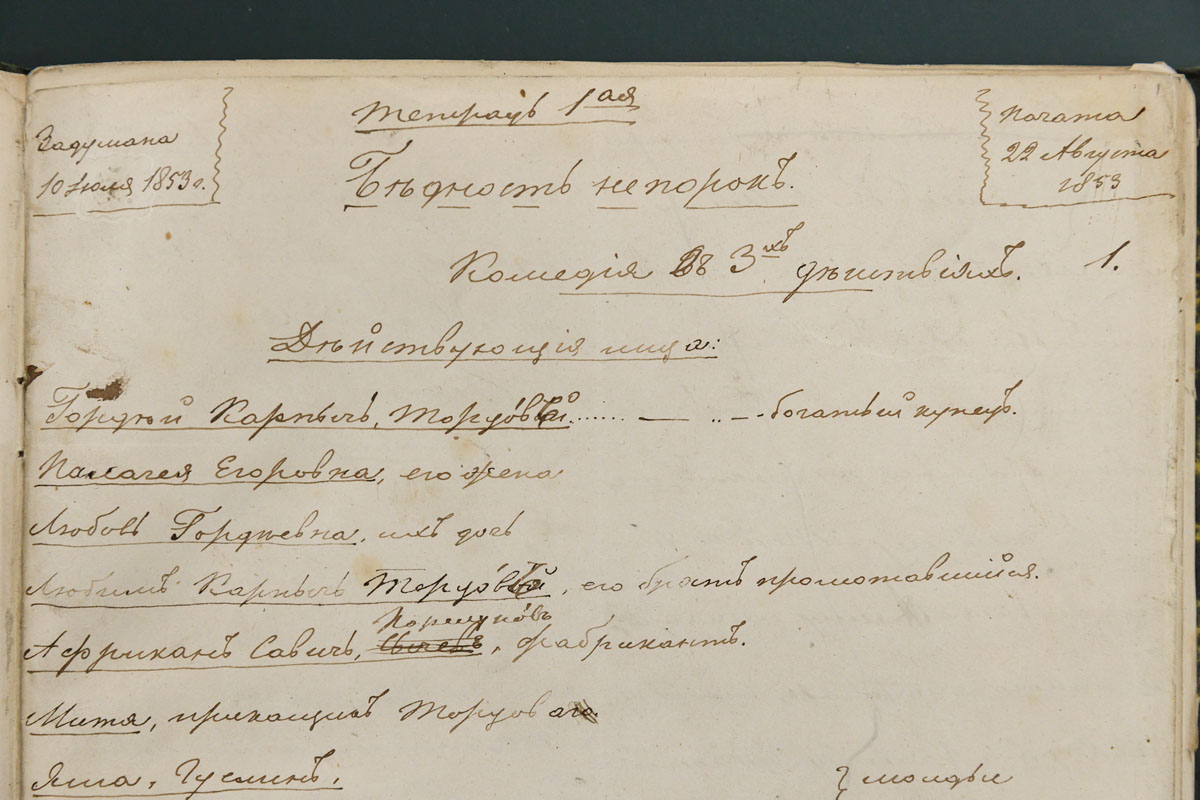 Тетрадь 1ая
Задумана
10 Июля 1853 г.
Начата
22 Августа
1853
Бѣдность не порокъ.
Комедія въ 3хъ дѣйствіяхъ.
1.
Дѣйствующія лица:
Гордѣй Карпычь, Торцовый ...... — .. — . богатый купецъ.
Палагея Егоровна, его жена
Любовь Гордѣевна, ихъ дочь
Любимъ Карпычь Торцовый, его братъ промотавшійся.
Коршуновъ
Африканъ Савичь, , фабрикантъ.
Митя, прикащикъ Торцоваго
Яша, Гуслинъ.
молодые